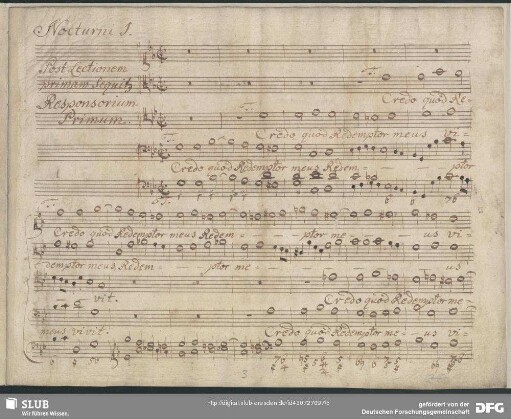 Nocturni I.
Post Lectionem
primam Sequit
Responsorium
Primum.
Credo quod Re-
Credo quod Redemptor meus vi-
Credo quod Redemptor meus Redem- ptor
Credo quod Redemptor meus Redem- ptor me- us vi-
demptor meus Redem- ptor me- us
vit. Credo quod Redemptor me-
meus vivit. Credo quod Redemptor me- us vi-
3
SLUB
Wir führen Wissen.
gefördert von der
Deutschen Forschungsgemeinschaft
DFG